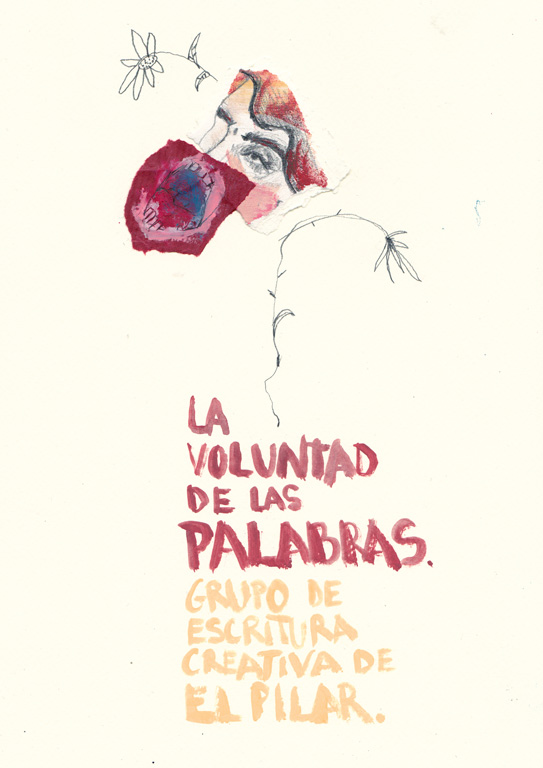 LA
VOLUNTAD
DE LAS
PALABRAS.
GRUPO DE
ESCRITURA
CREATIVA DE
EL PILAR.